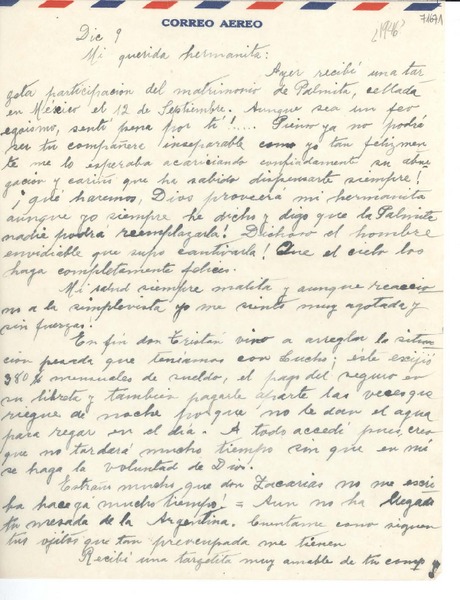 CORREO AEREO
Dic 9
¿1946?
71671
Mi querida hermanita:
Ayer recibí una tar
geta participacion del matrimonio de Palmita, cellada
en México el 12 de Septiembre. Aunque sea un feo
egoismo, sentí pena por ti!.... Pienso ya no podrá
ser tu compañera inseparable como yo tan felizmen
te me lo esperaba acariciando confiadamente su abne
gación y cariño que ha sabido dispensarte siempre!
¡qué haremos, Dios proveerá mi hermanita
aunque yo siempre he dicho y digo que la Palmita
nadie podrá reemplazarla! Dichoso el hombre
envidiable que supo cautivarla! Que el cielo los
haga completamente felices.
Mi salud siempre malita y aunque reaccio
no a la simplevista yo me siento muy agotada y
sin fuerzas!
En fin don Tristán vino a arreglar la situa
cion pesada que teníamos con Lucho; éste exijió
380 $ mensuales de sueldo, el pago del seguro en
su libreta y tambien pagarle aparte las veces que
riegue de noche porque no le dan el agua
para regar en el día. A todo accedí pues, creo
que no tardará mucho tiempo sin que en mí
se haga la voluntad de Dios.
Extraño mucho que don Zacarias no me escri
ba hace ya mucho tiempo! = Aun no ha llegado
tu mesada de la Argentina. Cuentame como siguen
tus ojitos que tan preocupada me tienen
Recibí una targetita muy amable de tu comp